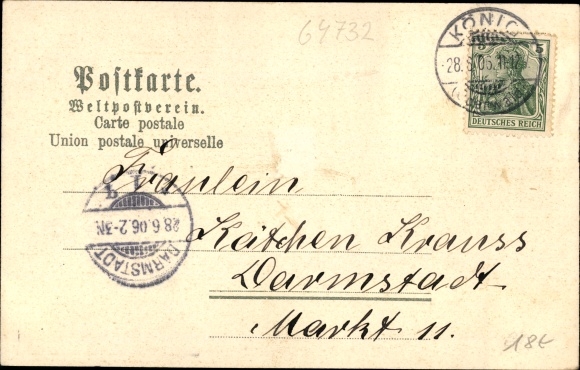 64732
KÖNIG
28.6.06.11-12
5
DEUTSCHES REICH
Postkarte.
Weltpostverein.
Carte postale
Union postale universelle
Fräulein
Kätchen Krauss
Darmstadt
Markt 11.
DARMSTADT
28.6.06.2-3N
18€